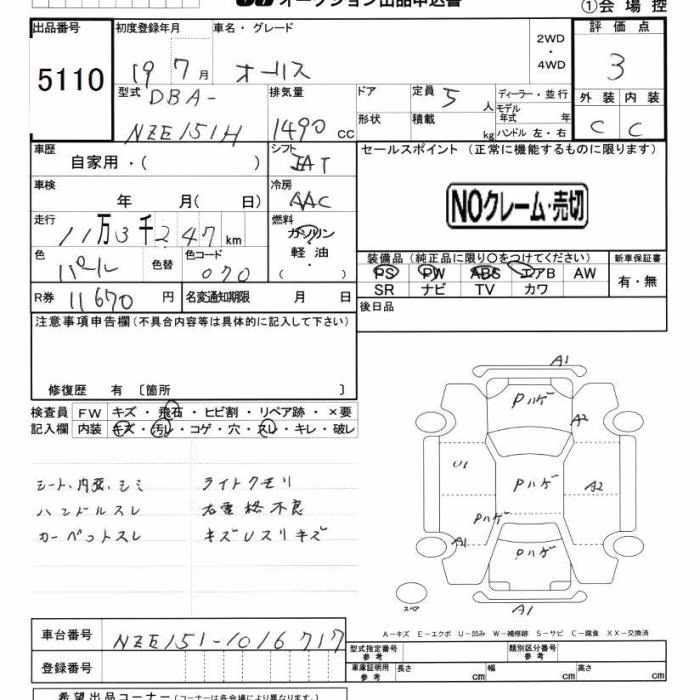 オークション出品申込書
①会場控
出品番号
5110
初度登録年月
19 7月
車名・グレード
オーリス
2WD
・
4WD
評価点
3
型式
DBA-
NZE151H
排気量
1490 cc
ドア
形状
定員 5 人
積載 kg
ディーラー・並行
モデル年式 年
ハンドル 左・右
外装 内装
C C
車歴
自家用・( )
シフト
FAT
車検
年 月( 日)
冷房
AAC
走行
11万3千247km
燃料
ガソリン
軽油
( )
色
パール
色替
色コード
070
R券 11670円
名変通知期限 月 日
セールスポイント (正常に機能するものに限ります)
NOクレーム・売切
装備品 (純正品に限り○をつけてください)
PS PW ABS エアB AW
SR ナビ TV カワ
新車保証書
有・無
後日品
注意事項申告欄(不具合内容等は具体的に記入して下さい)
修復歴 有 〔箇所 〕
検査員
記入欄
FW キズ・飛石・ヒビ割・リペア跡・×要
内装 キズ・汚レ・コゲ・穴・スレ・キレ・破レ
シート、内張、シミ
ハンドルスレ
カーペットスレ
ライトクモリ
右電格不良
キズUスリキズ
A1
Pハゲ
A2
U1
Pハゲ
A2
Pハゲ
A1
Pハゲ
A1
スペア
A-キズ E-エクボ U-凹み W-補修跡 S-サビ C-腐食 XX-交換済
車台番号
NZE151-1016717
登録番号
型式指定番号
参考
類別区分番号
参考
車庫証明用
参考
長さ cm
幅 cm
高さ cm
希望出品コーナー(コーナーは各会場により異なります。)